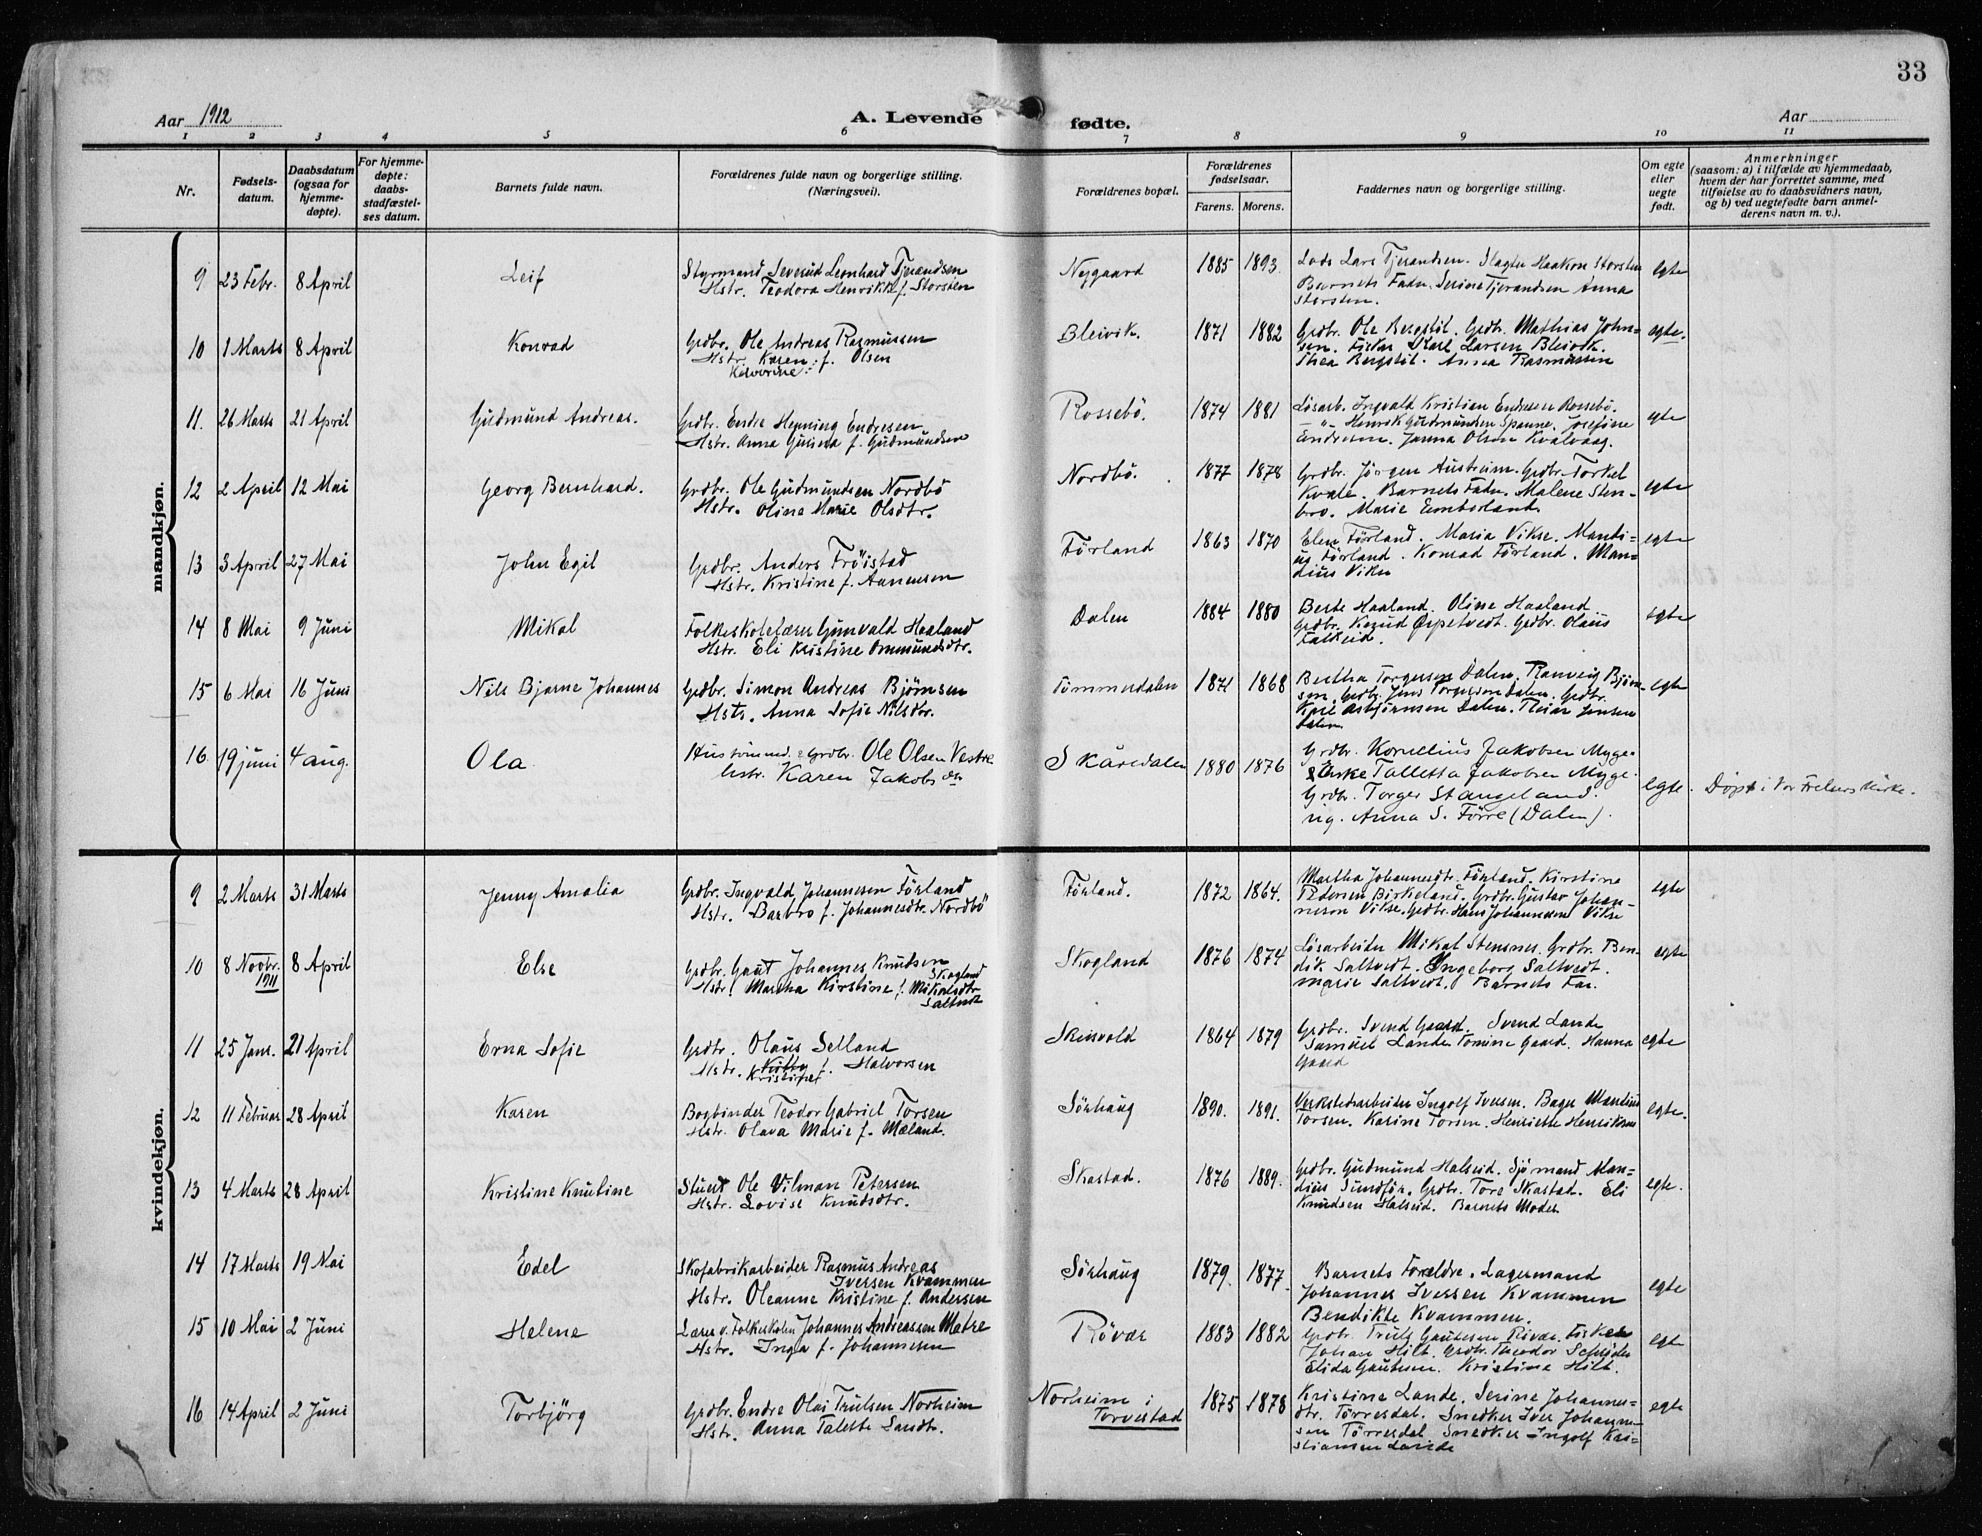 33
Aar 1912
A. Levende fødte.
Aar
1 2 3 4 5 6 7 8 9 10 11
Nr.
Fødsels-
datum.
Daabsdatum
(ogsaa for
hjemme-
døpte).
For hjemme-
døpte:
daabs-
stadfæstel-
ses datum.
Barnets fulde navn.
Forældrenes fulde navn og borgerlige stilling.
(Næringsvei).
Forældrenes bopæl.
Forældrenes
fødselsaar.
Farens. Morens.
Faddernes navn og borgerlige stilling.
Om egte
eller
uegte
født.
Anmerkninger
(saasom: a) i tilfælde av hjemmedaab,
hvem der har forrettet samme, med
tilføielse av to daabsvidners navn,
og b) ved uegtefødte barn anmel-
derens navn m. v.).
mandkjøn.
9 23 Febr. 8 April Leif
Styrmand Severud Leonhard Tjerandsen
Hstr. Teodora Henrikke f. Storsten
Nygaard 1885 1893
Lods Lars Tjerandsen. Slagter Haakon Storsten
Barnets Fader. Serine Tjerandsen Anna
Storsten.
egte
10 1 Marts 8 April Konrad
Grdbr. Ole Andreas Rasmussen
Hstr. Karen f. Olsen
Bleivik. 1871 1882
Grdbr. Ole Bergstöl. Grdbr. Mathias John-
sen. Fisker Karl Larsen Bleivik.
Thea Bergstöl. Anna Rasmussen
egte.
11. 26 Marts 21 April Gudmund Andreas.
Grdbr. Endre Henning Endresen
Hstr. Anna Gurina f. Gudmundsen
Rossebö. 1874 1881
Lösarb. Ingvald Kristian Endresen Rossebö.
-"- Henrik Gudmundsen Spanne. Josefine
Endresen. Janna Olsen Kvalvaag.
egte
12 2 April 12 Mai Georg Bernhard.
Grdbr. Ole Gudmundsen Nordbö
Hstr. Oline Marie Olsdtr.
Nordbö. 1877 1878
Grdbr. Jörgen Austreim. Grdbr. Torkel
Kvale. Barnets Fader. Malene Sten-
bro. Marie Emberland.
egte
13 3 April 27 Mai John Egil
Grdbr. Anders Fröistad
Hstr. Kristine f. Aanensen
Förland 1863 1870
Elen Förland. Maria Vikse. Mandi-
us Förland. Konrad Förland. Man-
dius Vikse
egte
14 8 Mai 9 Juni Mikal
Folkeskolelærer Gunvald Haaland
Hstr. Eli Kristine Ommundsdtr.
Dalen 1884 1880
Berte Haaland. Oline Haaland
Grdbr. Knud Ørpetvedt. Grdbr. Olaus
Falkeid.
egte
15 6 Mai 16 Juni Nils Bjarne Johannes
Grdbr. Simon Andreas Björnsen
Hstr. Anna Sofie Nilsdtr.
Tömmerdalen 1871 1868
Bertha Torgersen Dalen. Ranveig Björn-
sen. Grdbr. Jens Torgersen Dalen. Grdbr.
Asbjörnsen Dalen. Jensen
Dalen
egte
16 19 juni 4 aug. Ola
Grdbr. Ole Olsen Vestre
hstr. Karen Jakobsdtr
Skåredalen 1880 1876
Grdbr. Kornelius Jakobsen Myge.
Enke Talletta Jakobsen Myge.
Grdbr. Torger Stangeland.
ug. Anna S. Förre (Dalen).
egte. Döpt i Vor Frelsers Kirke.
kvindekjøn.
9 2 Marts 31 Marts Jenny Amalia
Grdbr. Ingvald Johannesen Förland
Hstr. Barbro f. Johannesdtr. Nordbö
Förland. 1872 1864.
Martha Johannesdtr. Förland. Kirstine
Pedersen Birkeland. Grdbr. Gustav Johan-
neson Vikse. Grdbr. Hans Johannesen Vikse
egte
10 8 Novbr. 1911 8 April Else
Grdbr. Gaut Johannes Knudsen Skogland
Hstr. Martha Kirstine f. Mikalsdtr Saltvedt
Skogland 1876 1874
Lösarbeider Mikal Stensnes. Grdbr. Ben-
dik Saltvedt. Ingeborg Saltvedt.
Marie Saltvedt. Barnets Far.
egte
11 25 Jan. 21 April Erna Sofie
Grdbr. Olaus Selland
Hstr. Kristine f. Halvorsen
Skeisvold 1864 1879
Grdbr. Svend Gaard. Svend Lande
Samuel Lande Tomine Gaard. Hanna
Gaard
egte
12 11 Februar 28 April Karen
Bogbinder Teodor Gabriel Torsen
Hstr. Olava Marie f. Mæland.
Sörhaug 1890. 1891.
Verkstedsarbeider Ingolf Iversen. Bager Mandius
Torsen. Karine Torsen. Henriette Henriksen
egte.
13 4 Marts 28 April Kristine Knutine
Stuert Ole Vilman Petersen
Hstr. Lovise Knudsdtr.
Skastad. 1876 1889.
Grdbr. Gudmund Halseid. Sjömand Man-
dius Sundför. Grdbr. Tore Skastad. Eli
Knudsen Halseid. Barnets Moder
egte.
14 17 Marts 19 Mai Edel
Skofabrikarbeider Rasmus Andreas
Iversen Kvammen
Hstr. Oleanne Kristine f. Andersen
Sörhaug 1879. 1877.
Barnets Forældre. Lagermand
Johannes Iversen Kvammen
Bendikte Kvammen.
egte
15 10 Mai 2 Juni Helene
Lærer v. Folkeskolen Johannes Andreassen Matre
Hstr. Inga f. Johannesen
Rövær 1883 1882
Grdbr. Truls Gautesen Rövær. Fisker
Johan Hilt. Grdbr. Theodor Schröder
Elida Gautesen. Kristina Hilt.
egte
16 14 April 2 Juni Torbjörg
Grdbr. Endre Olai Trulsen Norheim
Hstr. Anna Talette Larsdtr.
Norheim i
Torvestad
1875 1878
Kristine Lande. Serine Johannes-
dtr. Törresdal. Snedker Iver Johanne-
sen Törresdal. Snedker Ingolf Kri-
stiansen Lande
egte